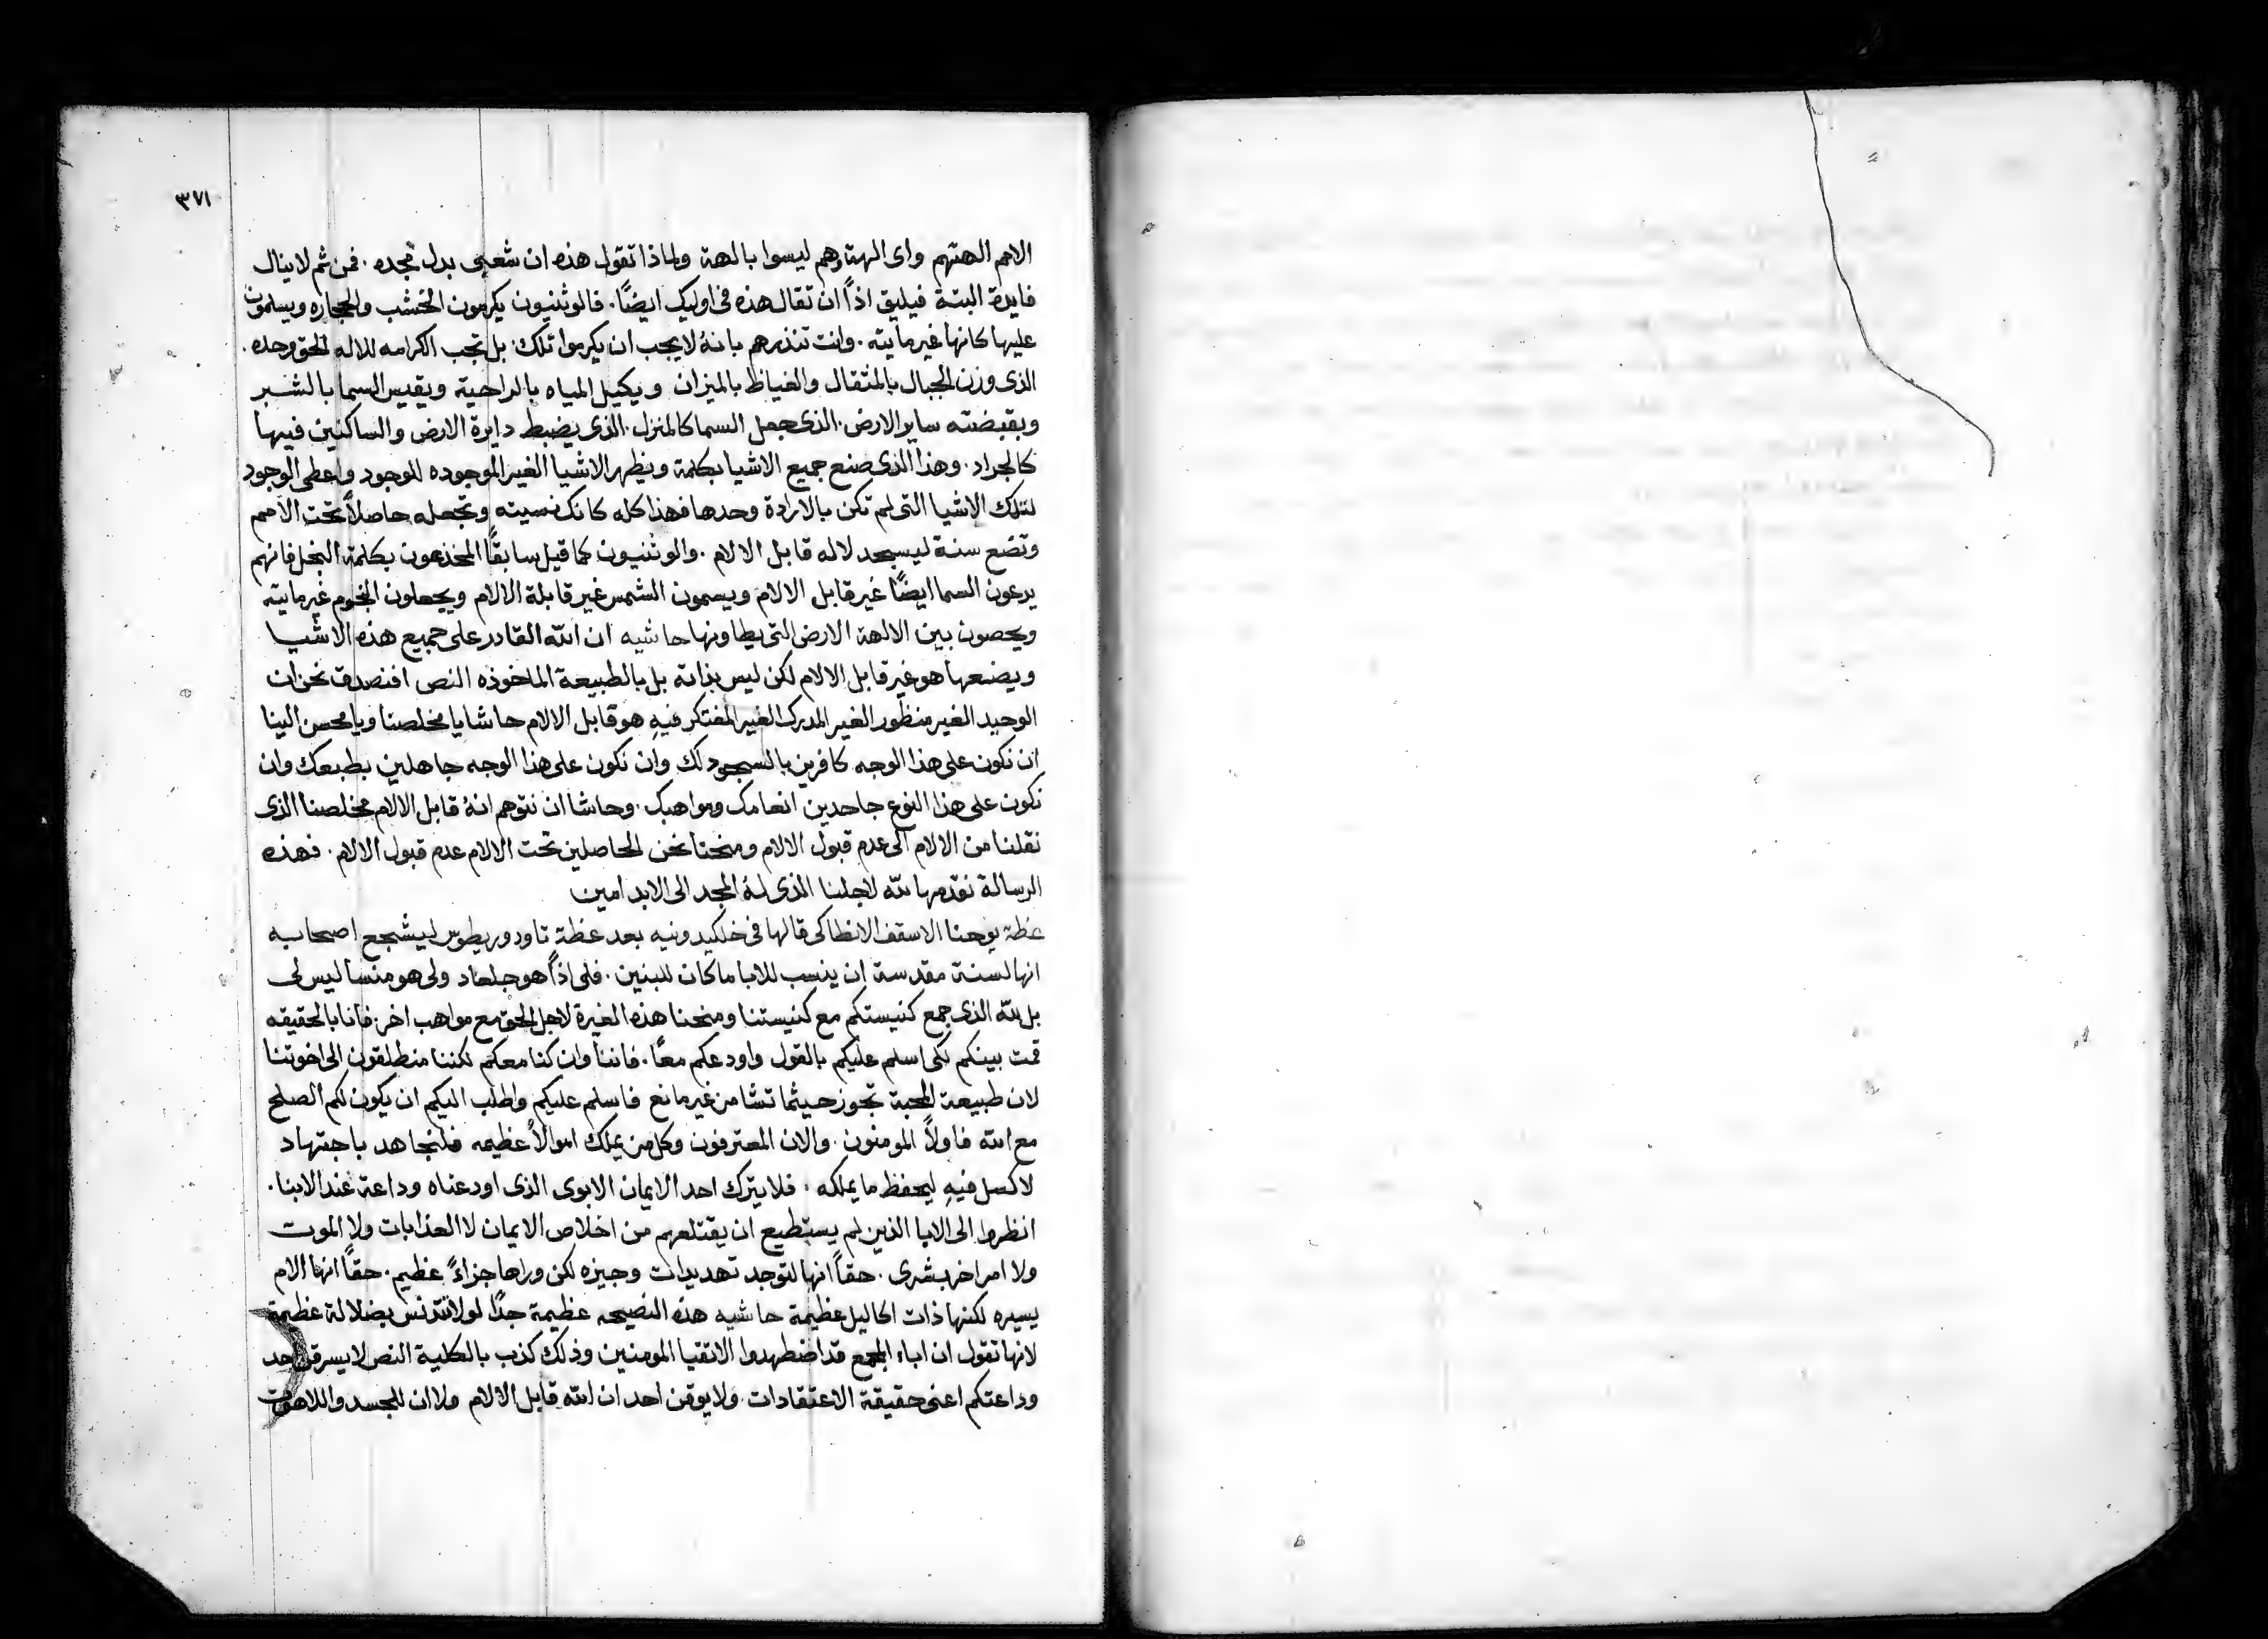 ٣٧١
الامم الهتهم واى الهة وهم ليسوا بالهة ولماذا تقول هذه ان شعبى بدل مجده . فمن ثم لا ينال
فايدة البتة فيليق اذاً ان تقال هذه فى اوليك ايضًا . فالوثنيون يكرمون الخشب والحجاره ويسلمون
عليها كانها غير مايته . وانت تنذرهم بانهُ لا يجب ان يكرموا تلك بل تجب الكرامه للاله الحق وحده .
الذى وزن الجبال بالمثقال والغياظ بالميزان ويكيل المياه بالراحية ويقيس السما بالشبر
وبقبضته ساير الارض . الذى جعل السما كالمنزل . الذى يضبط دايرة الارض والساكنين فيها
كالجراد . وهذا الذى صنع جميع الاشيا بكلمة ويظهر الاشيا الغير الموجوده للوجود واعطى الوجود
لتلك الاشيا التى لم تكن بالارادة وحدها فهذا كله كانك نسيته وتجعله حاصلاً تحت الامم
وتضع سنة ليسجد لاله قابل الالام . والوثنيون كما قيل سابقًا المخذعون بكلمة النحل فانهم
يدعون السما ايضًا غير قابل الالام ويسمون الشمس غير قابلة الالام ويجعلون النجوم غير مايته
ويحصون بين الالهة الارض التى يطاونها حاشيه ان الله القادر على جميع هذه الاشيا
ويضعها هو غير قابل الالام لكن ليس بذاته بل بالطبيعة الماخوذه النص افنصدق نحن ان
الوحيد الغير منظور الغير المدرك الغير المفتكر فيهِ هو قابل الالام حاشا يا مخلصنا ويا محسن الينا
ان نكون على هذا الوجه كافرين بالسجود لك وان نكون على هذا الوجه جاهلين بطبعك وان
نكون على هذا النوع جاحدين انعامك ومواهبك . وحاشا ان نتوهم انهُ قابل الالام مخلصنا الذى
نقلنا من الالام الى عدم قبول الالام ومنحنا نحن الحاصلين تحت الالام عدم قبول الالام . فهذه
الرسالة نقدمها لله لاجلنا الذى لهُ المجد الى الابد امين
عظة يوحنا الاسقف الانطاكى قالها فى خلكيدونيه بعد عظة تاودوريطوس ليشجع اصحابه
انها لسنة مقدسة ان ينسب للابا ما كان للبنين . فلى اذاً هو جلعاد ولى هو منسا ليس لى
بل لله الذى جمع كنيستكم مع كنيستنا ومنحنا هذه الغيرة لاجل الحق مع مواهب اخر . فانا بالحقيقه
قمت بينكم لكى اسلم عليكم بالقول واودعكم معًا . فاننا وان كنا معكم لكننا منطلقون الى اخوتنا
لان طبيعة المحبة تجوز حيثما تشا من غير مانع فاسلم عليكم واطلب اليكم ان يكون لكم الصلح
مع الله فاولاً المومنون . والان المعترفون وكل من يملك اموالاً عظيمه فلنجاهد باجتهاد
لا كسل فيهِ ليحفظ ما يملكه . فلا يترك احد الايمان الابوى الذى اودعناه وداعة عند الابنا .
انظروا الى الابا الذين لم يستطيع ان يقتلعهم من اخلاص الايمان لا العذابات ولا الموت
ولا امر اخر بشرى . حقاً انها لتوجد تهديدات وجيزه لكن وراها جزاءً عظيم . حقاً انها الام
يسيره لكنها ذات اكاليل عظيمة حاشيه هذه النصيحه عظيمة جدًا لولا تتدنس بضلالة عظيمة
لانها تقول ان اباء المجمع قد اضطهدوا الاتقيا المومنين وذلك كذب بالكلية النص لا يسرقن احد
وداعتكم اعنى حقيقة الاعتقادات . ولا يوقن احد ان الله قابل الالام ولا ان للجسد واللاهوت